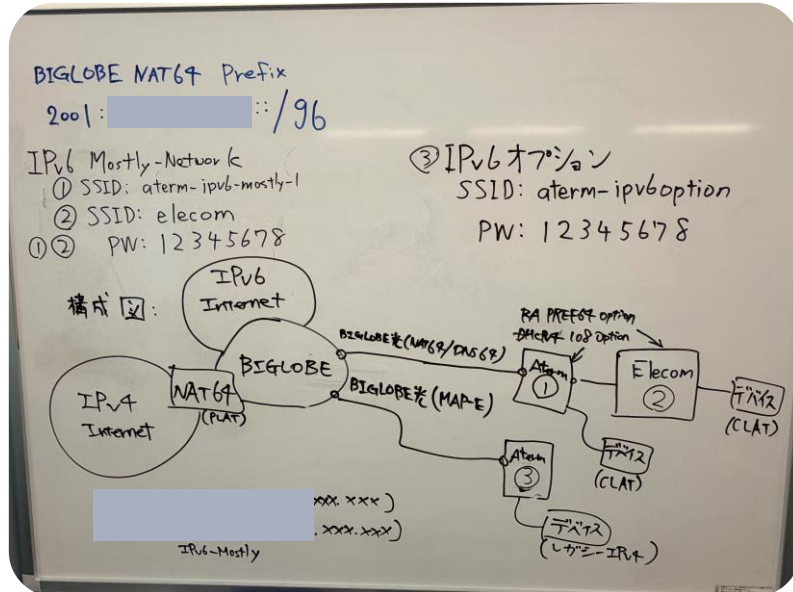 BIGLOBE NAT64 Prefix
2001: ::/96
IPv6 Mostly-Network
① SSID: aterm-ipv6-mostly-1
② SSID: elecom
①② PW: 12345678
③ IPv6オプション
SSID: aterm-ipv6option
PW: 12345678
構成図:
IPv6
Internet
BIGLOBE
NAT64
(PLAT)
IPv4
Internet
BIGLOBE光(NAT64/DNS64)
BIGLOBE光(MAP-E)
RA PREF64 option
DHCPv4 108 Option
Aterm
①
Elecom
②
デバイス
(CLAT)
デバイス
(CLAT)
Aterm
③
デバイス
(レガシーIPv4)
xxx.xxx)
.xxx.xxx)
IPv6-Mostly